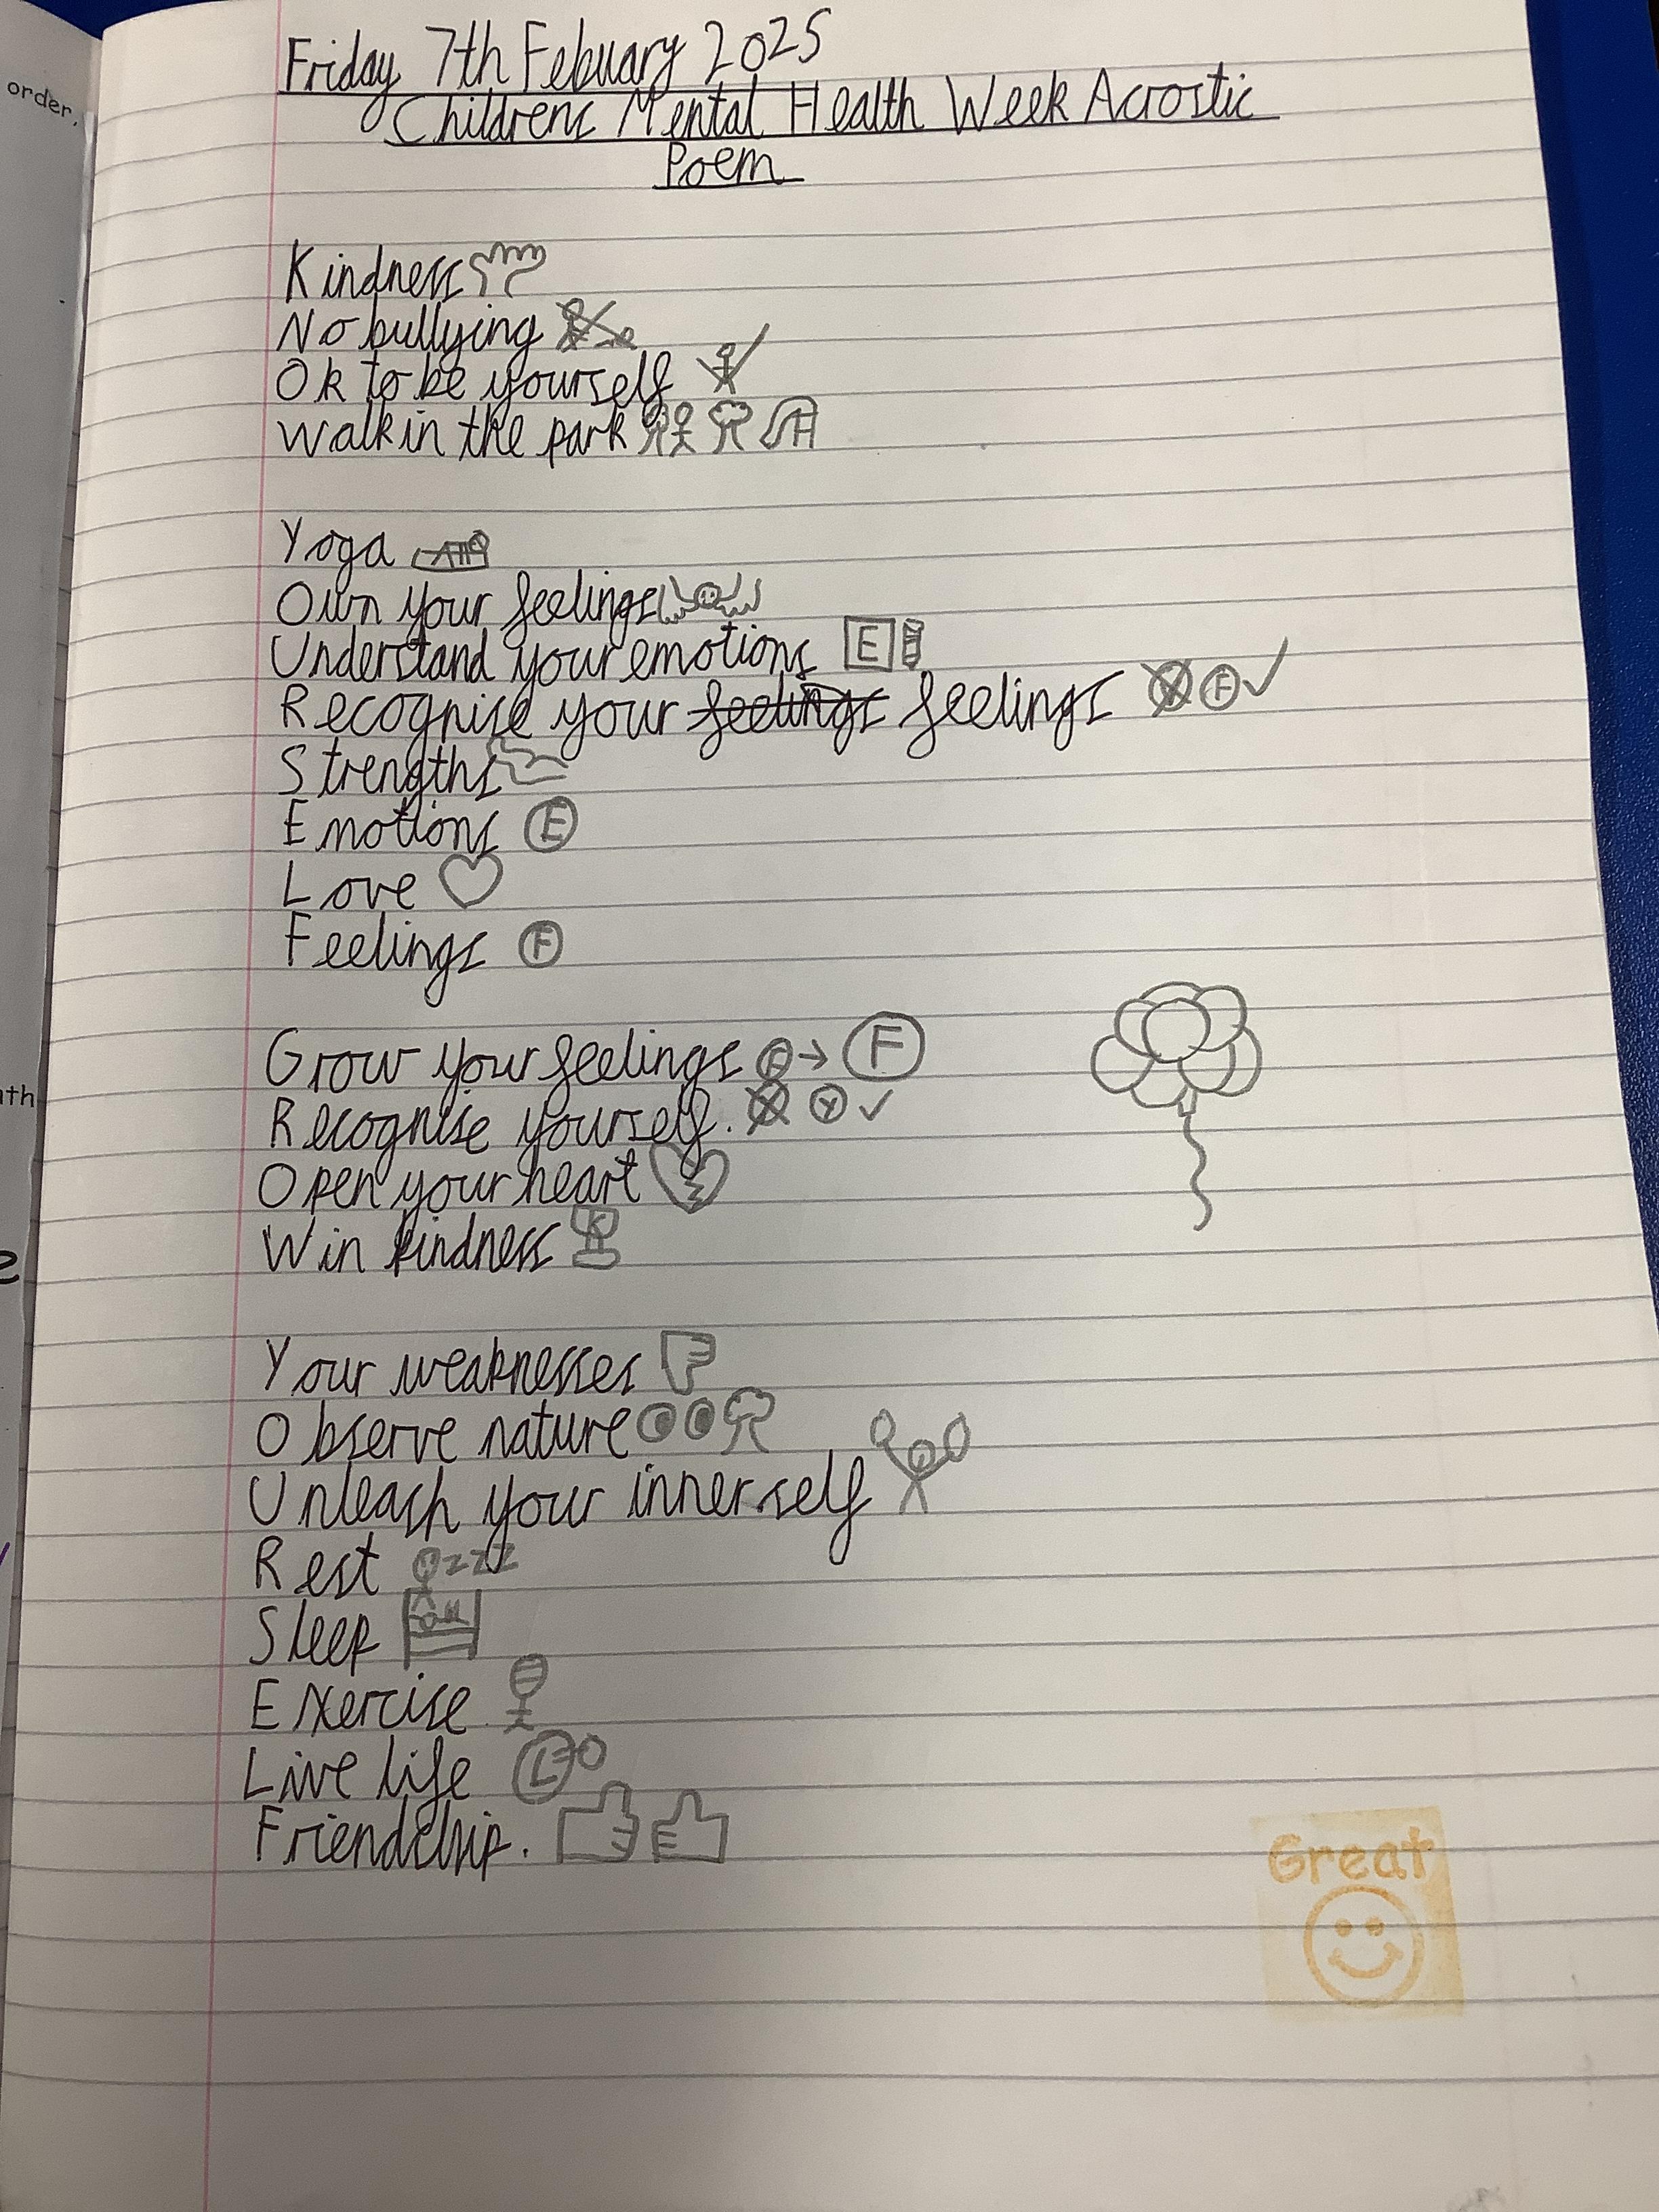 order.
Friday 7th Febuary 2025
Childrens Mental Health Week Acrostic
Poem
Kindness
No bullying
Ok to be yourself
Walk in the park
Yoga
Own your feelings
Understand your emotions E
Recognise your feelings feelings F
Strengths
Emotions E
Love
Feelings F
Grow your feelings F → F
Recognise yourself. Y
Open your heart
Win kindness K
Your weaknesses
Observe nature
Unleash your inner self
Rest zzz
Sleep
Exercise
Live life L
Friendship.
Great